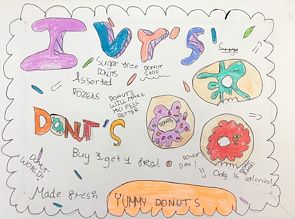 Ivy's
Sugar free
DONUTS
DONUT
SHOP
Assorted
DOZENS
DONUTS
WILL MAKE
YOU FEEL
BETTER
DONUT'S
Buy 3 get 1 free!
DONUT
DAY!
Only 16 calories!
DONUT
WORLD!
Made fresh
YUMMY DONUTS